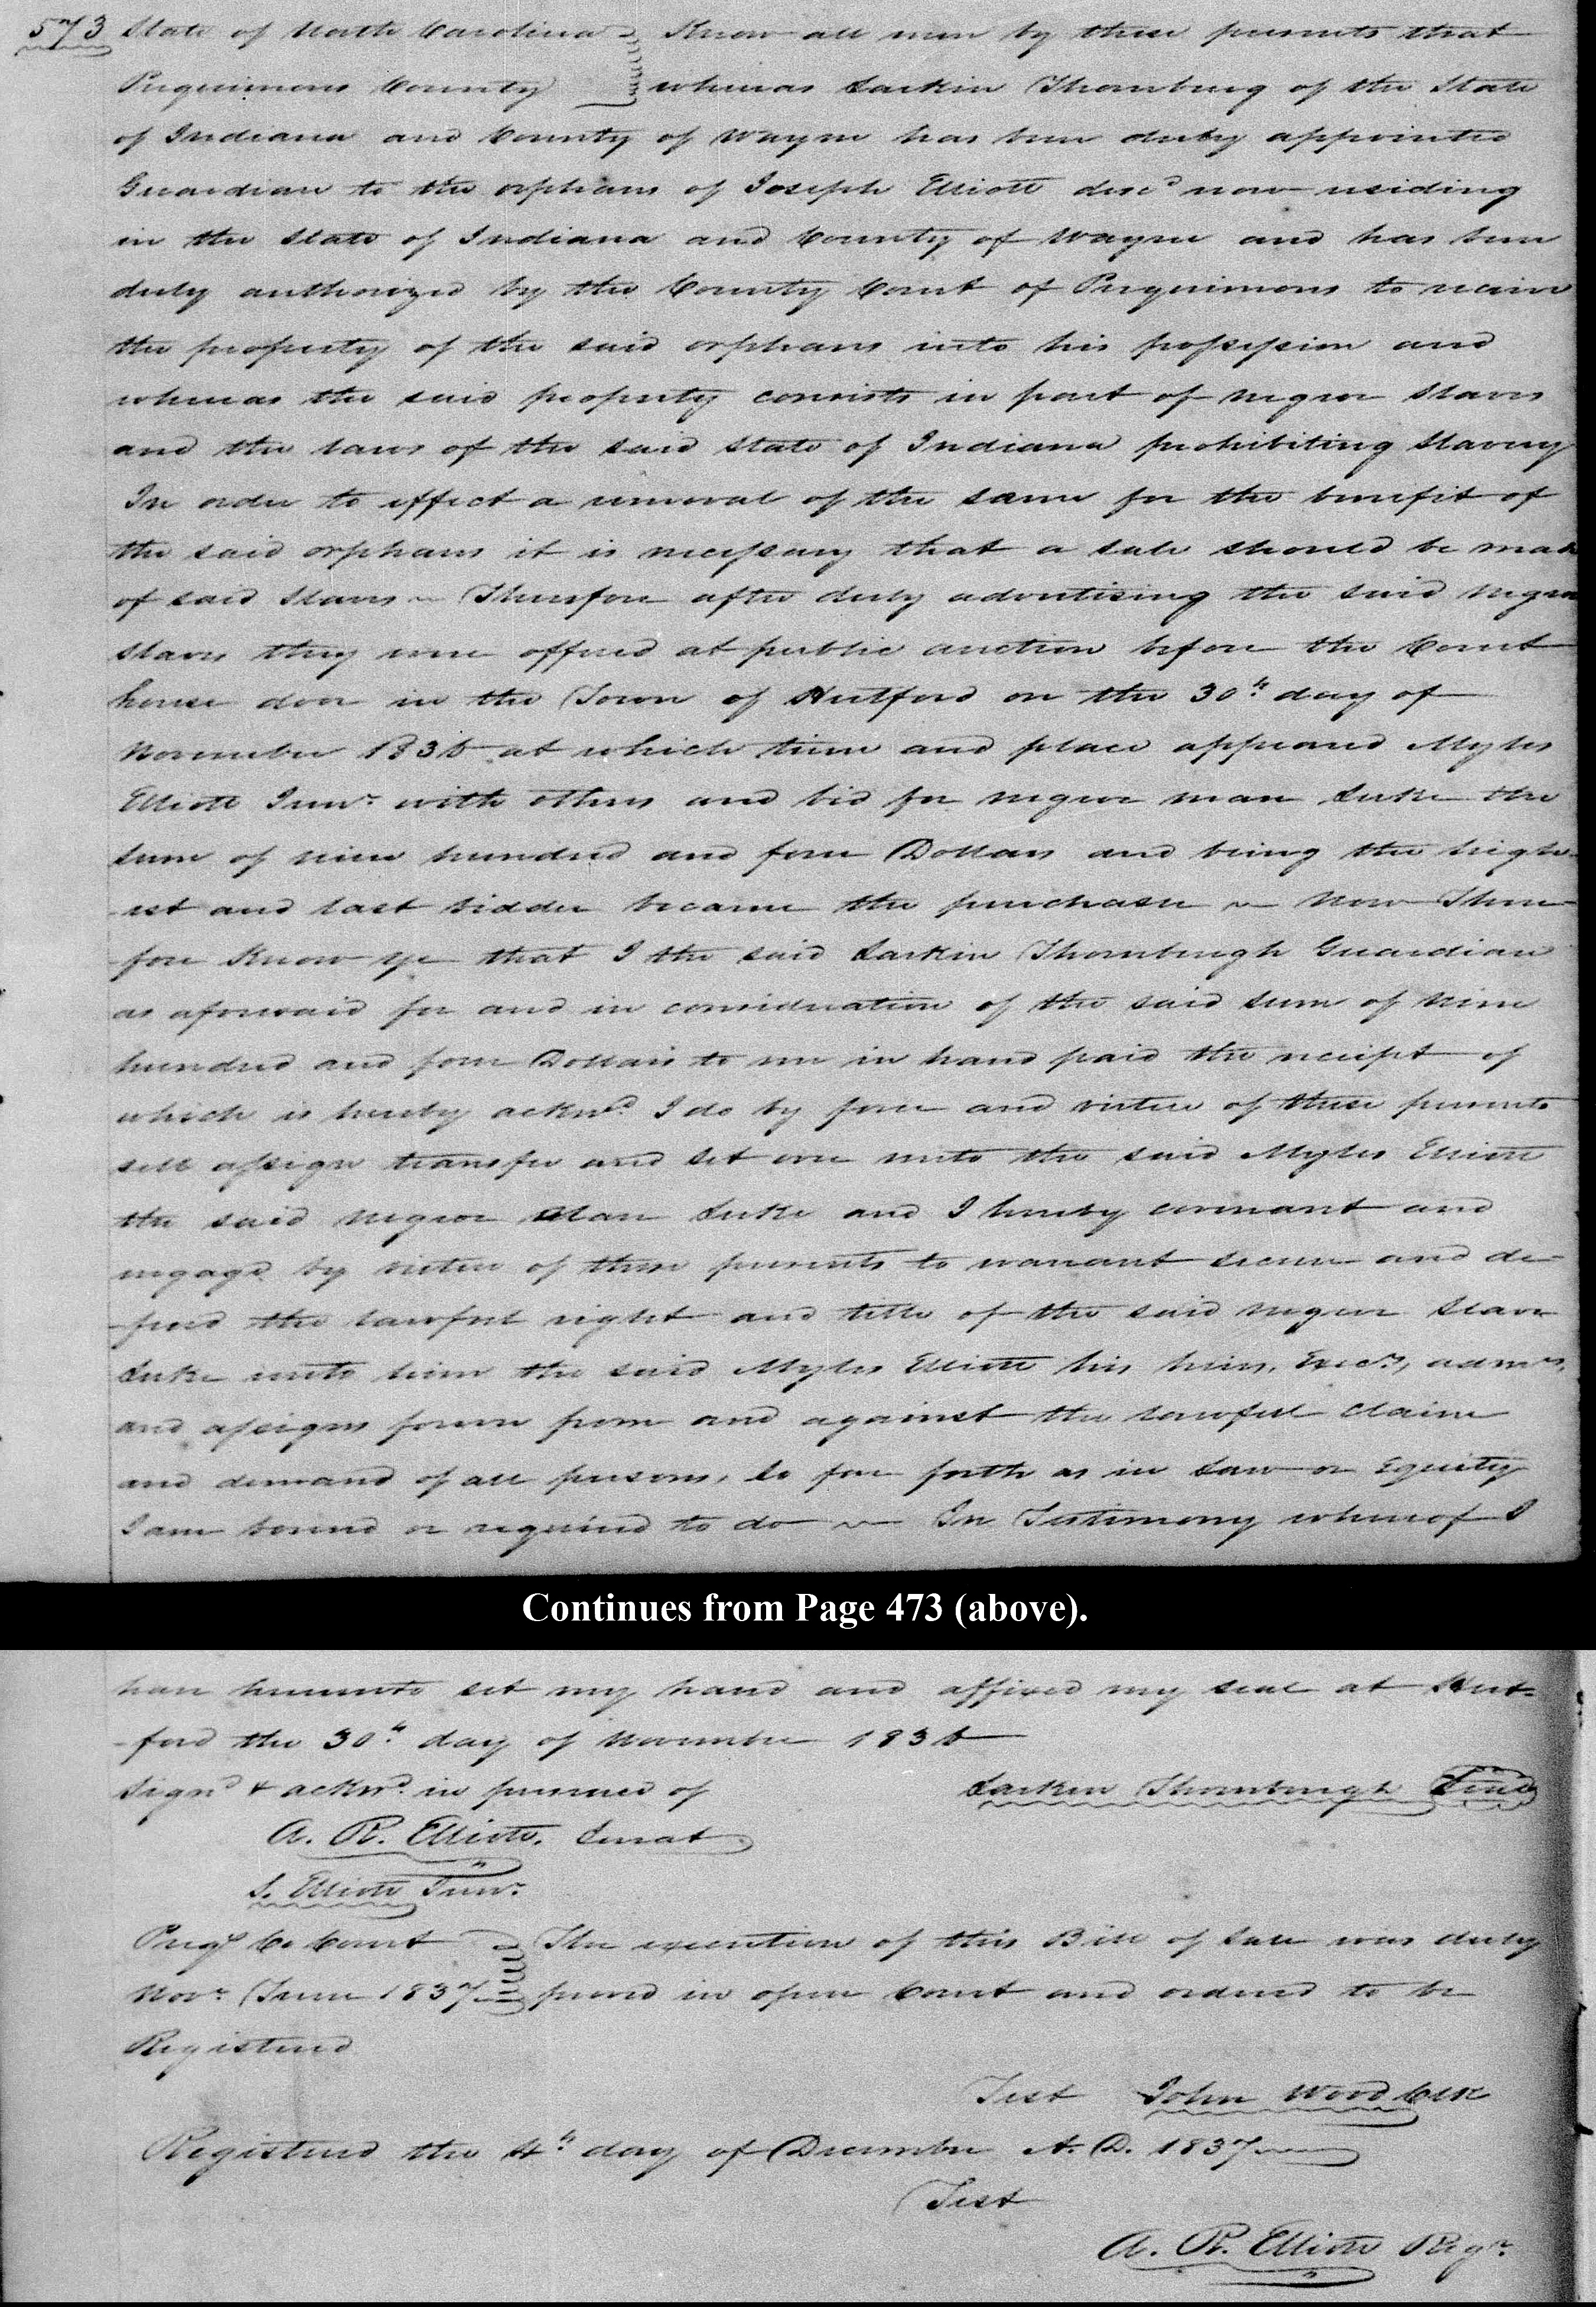 573 State of North Carolina Know all men by these presents that
Perquimons County whereas Larkin Thornburg of the State
of Indiana and County of Wayne has been duly appointed
Guardian to the orphans of Joseph Elliott decd now residing
in the State of Indiana and County of Wayne and has been
duly authorized by the County Court of Perquimons to receive
the property of the said orphans into his possession and
whereas the said property consists in part of negroe Slaves
and the laws of the said State of Indiana prohibiting Slavery
In order to effect a removal of the same for the benefit of
the said orphans it is necessary that a sale should be made
of said Slaves ~ Therefore after duly advertising the said negroe
slaves they were offered at public auction before the Court
house door in the Town of Hertford on the 30th day of
November 1836 at which time and place appeared Myles
Elliott Junr. with others and bid for negroe man Luke the
sum of nine hundred and four Dollars and being the high-
-est and last bidder became the purchaser ~ Now There-
-fore Know ye that I the said Larkin Thornburgh Guardian
as aforesaid for and in consideration of the said sum of Nine
hundred and four Dollars to me in hand paid the receipt of
which is hereby acknd. I do by force and virtue of these presents
sell assign transfer and set over unto the said Myles Elliott
the said negroe Man Luke and I hereby covenant and
engage by virtue of these presents to warrant secure and de-
-fend the lawful right and title of the said negroe Slave
Luke unto him the said Myles Elliott his heirs, Execrs, admrs,
and assigns forever from and against the lawful claim
and demand of all persons, so far forth as in Law or Equity
I am bound or required to do ~ In Testimony whereof I
Continues from Page 473 (above).
have hereunto set my hand and affixed my seal at Hert-
-ford the 30th day of November 1836
Signd & acknd. in presence of Larkin Thornburgh Seal
A. R. Elliott. Jurat
S. Elliott Junr.
Perqs Co Court The execution of this Bill of Sale was duly
Novr. Term 1837 proved in open Court and ordered to be
Registered
Test John Wood Clk
Registered the 4th day of December A. D. 1837
Test
A. R. Elliott Regr.